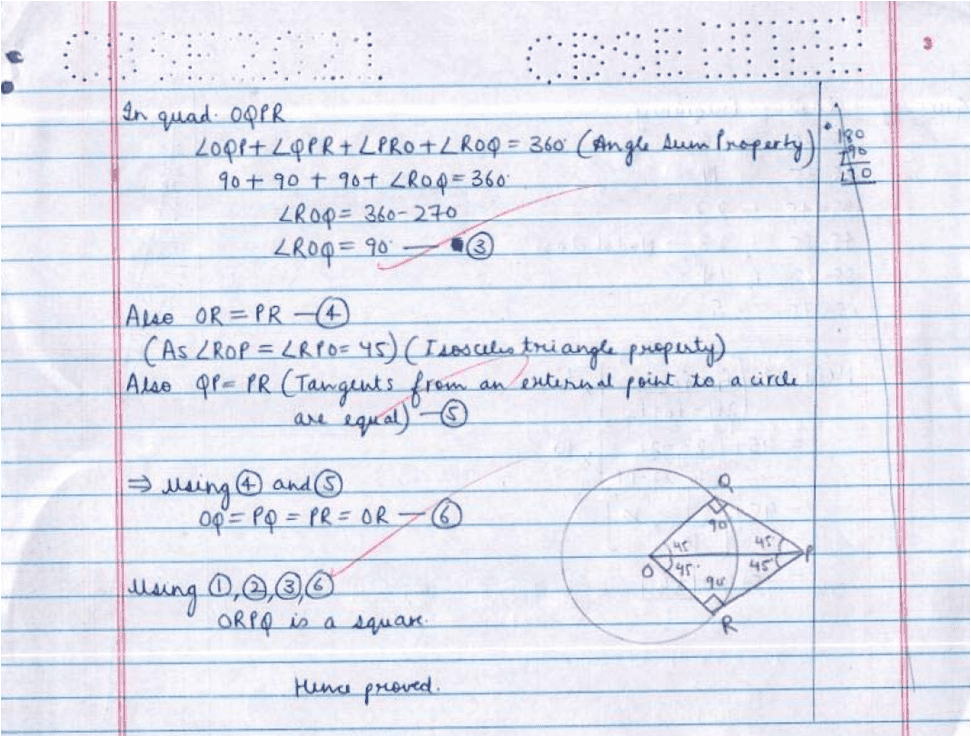 3
In quad. OQPR
∠OQP + ∠QPR + ∠PRO + ∠ROQ = 360° (Angle Sum Property)
90 + 90 + 90 + ∠ROQ = 360°
∠ROQ = 360 - 270
∠ROQ = 90° — ③
Also OR = PR — ④
(As ∠ROP = ∠RPO = 45) (Isosceles triangle property)
Also QP = PR (Tangents from an external point to a circle
are equal) — ⑤
⇒ Using ④ and ⑤
OQ = PQ = PR = OR — ⑥
Using ①, ②, ③, ⑥
ORPQ is a square.
Hence proved.
180
90
Q
90
45° 45°
O P
45° 45
90
R